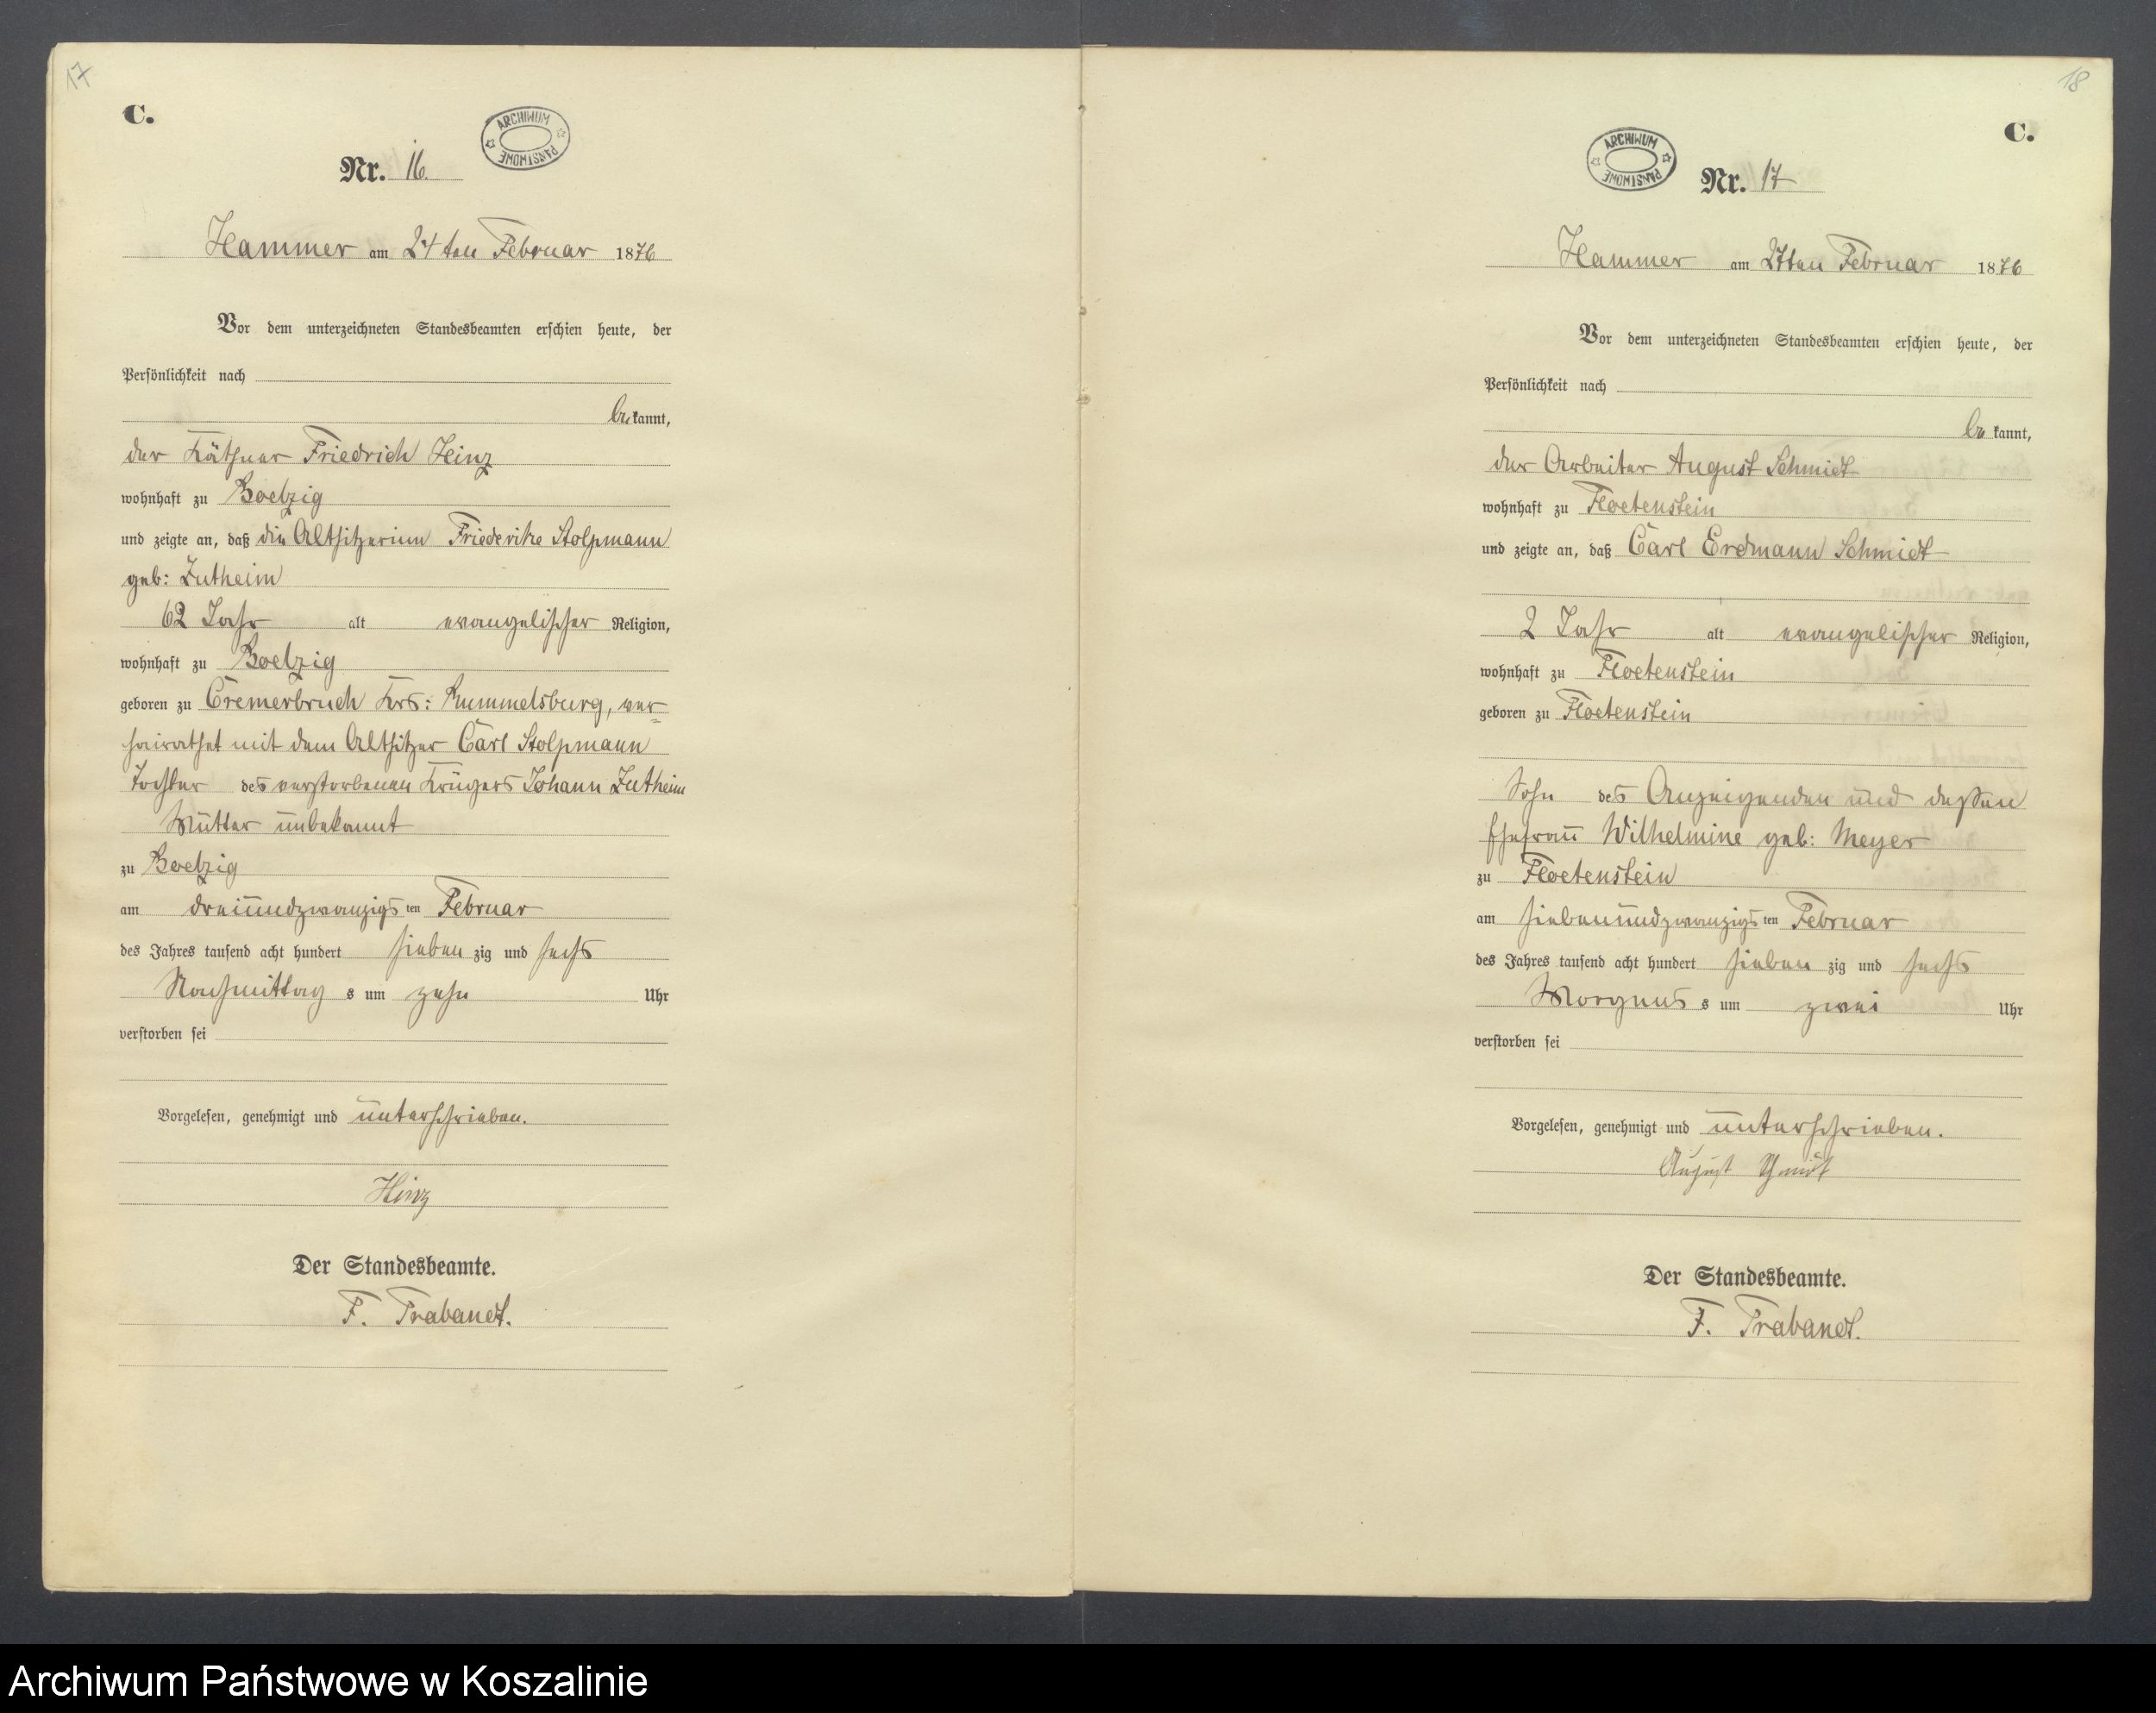 17
C.
ARCHIWUM PAŃSTWOWE
Nr. 16.
Hammer am 24ten Februar 1876
Vor dem unterzeichneten Standesbeamten erschien heute, der
Persönlichkeit nach
be kannt,
der Käthner Friedrich Heinz
wohnhaft zu Boelzig
und zeigte an, daß die Altsitzerinn Friederike Stolpmann
geb: Zutheim
62 Jahr alt evangelischer Religion,
wohnhaft zu Boelzig
geboren zu Cremerbruch Krs: Rummelsburg, ver=
heirathet mit dem Altsitzer Carl Stolpmann
Tochter des verstorbenen Krügers Johann Zutheim
Mutter unbekannt
zu Boelzig
am dreiundzwanzigs ten Februar
des Jahres tausend acht hundert sieben zig und sechs
Nachmittag s um zehn Uhr
verstorben sei
Vorgelesen, genehmigt und unterschrieben.
Hinz
Der Standesbeamte.
F. Trabandt.
18
C.
ARCHIWUM PAŃSTWOWE
Nr. 17
Hammer am 27ten Februar 1876
Vor dem unterzeichneten Standesbeamten erschien heute, der
Persönlichkeit nach
be kannt,
der Arbeiter August Schmidt
wohnhaft zu Floetenstein
und zeigte an, daß Carl Erdmann Schmidt
2 Jahr alt evangelischer Religion,
wohnhaft zu Floetenstein
geboren zu Floetenstein
Sohn des Anzeigenden und dessen
Ehefrau Wilhelmine geb: Meyer
zu Floetenstein
am siebenundzwanzigs ten Februar
des Jahres tausend acht hundert sieben zig und sechs
Morgens s um zwei Uhr
verstorben sei
Vorgelesen, genehmigt und unterschrieben.
August Schmidt
Der Standesbeamte.
F. Trabandt.
Archiwum Państwowe w Koszalinie